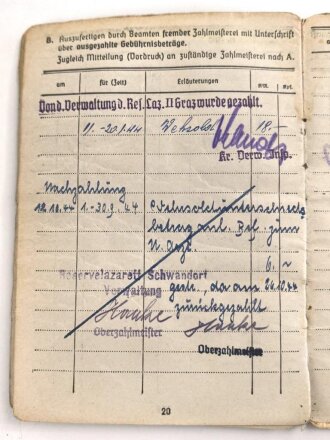 B. Auszufertigen durch Beamten fremder Zahlmeisterei mit Unterschrift
über ausgezahlte Gebührnisbeträge.
Zugleich Mitteilung (Vordruck) an zuständige Zahlmeisterei nach A.
am für (Zeit) Erläuterungen
Von d. Verwaltung d. Res. Laz. II Graz wurde gezahlt.
11.-20.1.44 Wehrsold 18.-
Kr. Verw. Insp.
Nachzahlung
12.10.44 1.-30.9.44 Wehrsoldunterschieds
betrag
6,-
Reservelazarett Schwandorf
Verwaltung
da am 26.10.44
zurückgezahlt
Oberzahlmeister
Oberzahlmeister
20